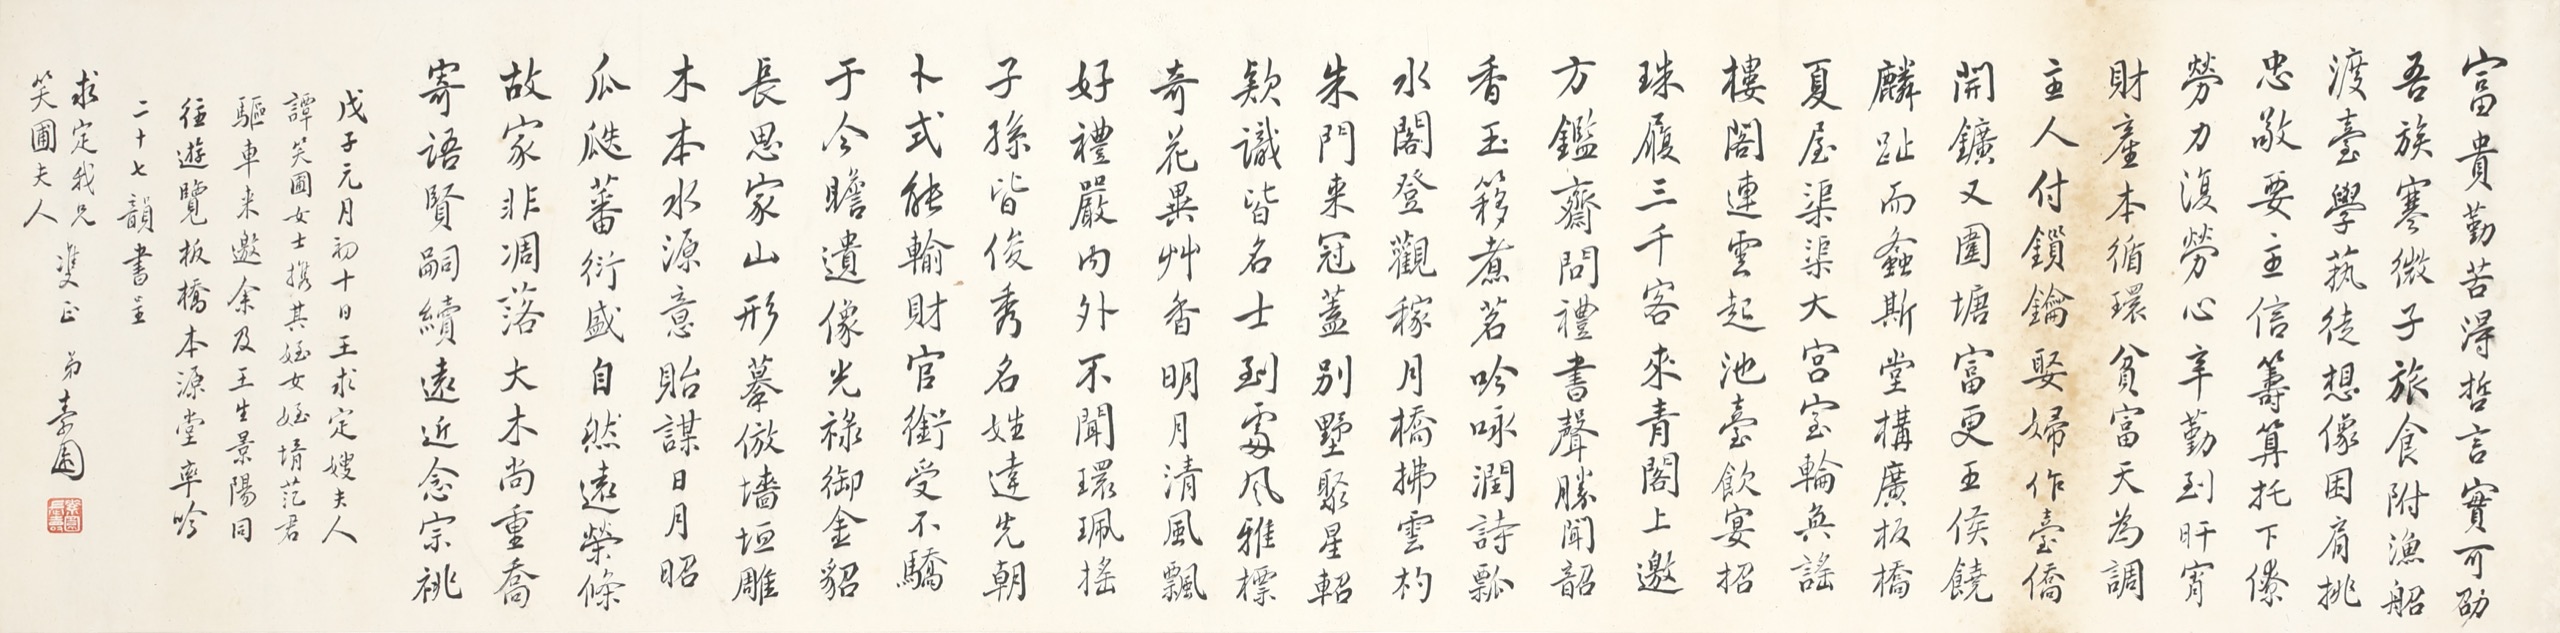 富貴勤苦得哲言實可劭
吾族寒微子旅食附漁船
渡臺學藝徒想像困肩挑
忠敬要主信籌算托下僚
勞力復勞心辛勤到旰宵
財產本循環貧富天為調
主人付鎖鑰娶婦作臺僑
開鑛又圍塘富更王侯饒
麟趾而螽斯堂構廣板橋
夏屋渠渠大宮室輪奐謠
樓閣連雲起池臺飲宴招
珠履三千客來青閣上邀
方鑑齋問禮書聲勝聞韶
香玉簃煮茗吟咏潤詩瓢
水閣登觀稼月橋拂雲杓
朱門来冠蓋別墅聚星軺
欵識皆名士到處風雅標
奇花異艸香明月清風飄
好禮嚴內外不聞環珮搖
子孫皆俊秀名姓達先朝
卜式能輸財官銜受不驕
于今瞻遺像光祿御金貂
長思家山形摹倣墻垣雕
木本水源意貽謀日月昭
瓜瓞蕃衍盛自然遠榮條
故家非凋落大木尚重喬
寄語賢嗣續遠近念宗祧
戊子元月初十日王求定嫂夫人
譚笑圃女士携其姪女姪壻范君
驅車来邀余及王生景陽同
往遊覽板橋本源堂率吟
二十七韻書呈
求定我兄
笑圃夫人
雙正 弟素園